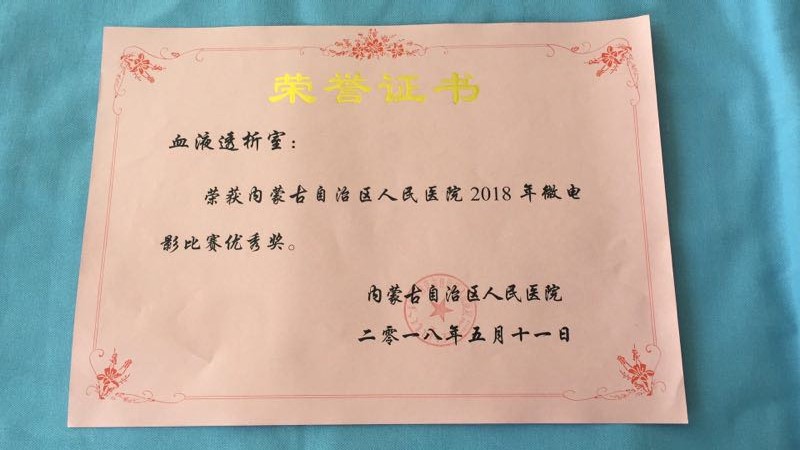 荣誉证书
血液透析室：
荣获内蒙古自治区人民医院2018年微电
影比赛优秀奖。
内蒙古自治区人民医院
二零一八年五月十一日